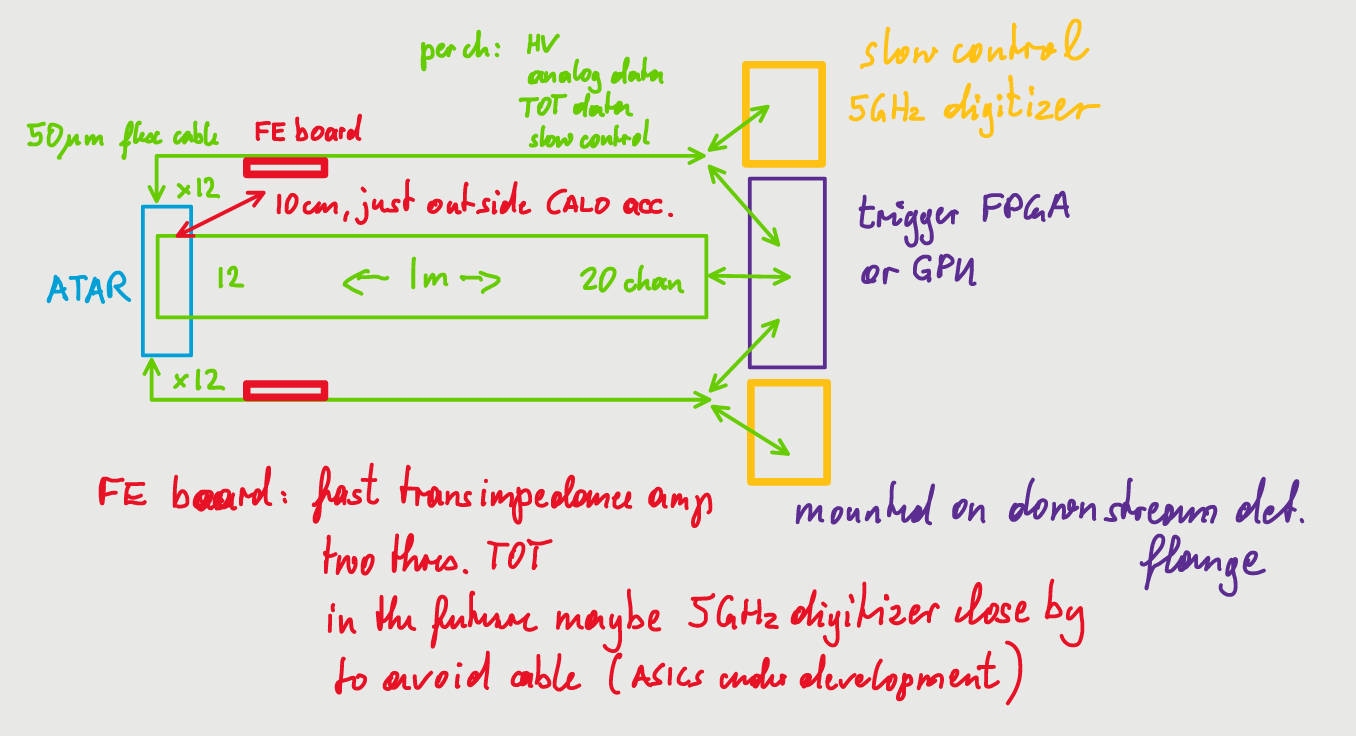 per ch: HV
analog data
TOT data
slow control
slow control
5GHz digitizer
50μm flex cable
FE board
×12
10cm, just outside CALO acc.
trigger FPGA
or GPU
ATAR
12
1m
20 chan
×12
FE board: fast transimpedance amp
two thres. TOT
in the future maybe 5GHz digitizer close by
to avoid cable (ASICS under development)
mounted on downstream det.
flange